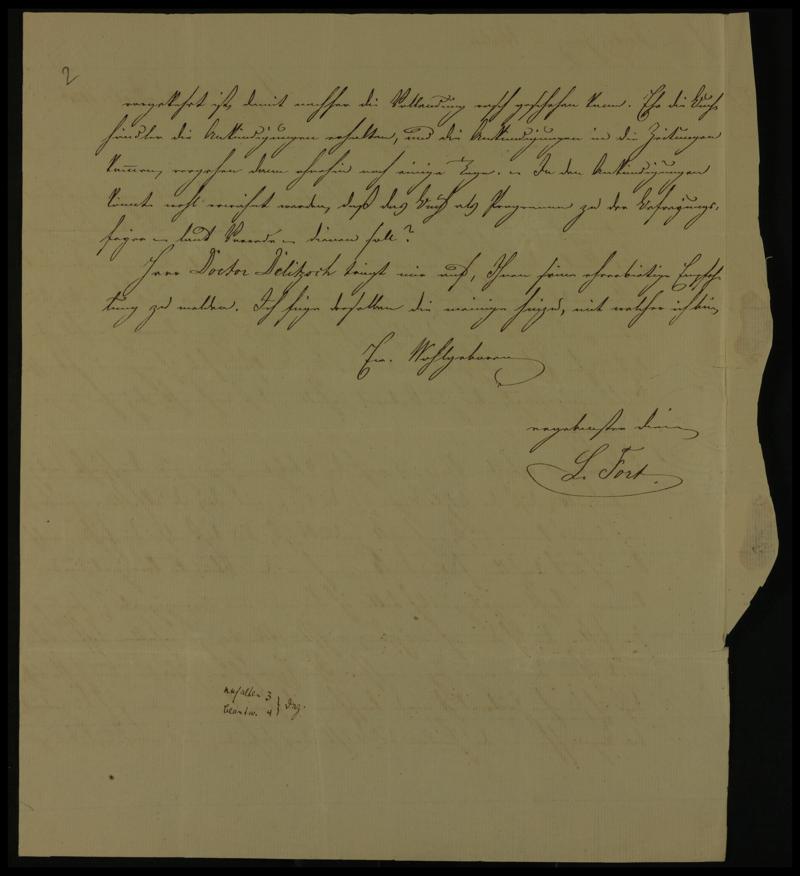 2
vorgekehrt ist, damit nachher die Vollendung rasch geschehen kann. Ehe die Buch-
händler die Ankündigungen erhalten, und die Ankündigungen in die Zeitungen
kommen, vergehen dann ohnehin noch einige Tage. – In den Ankündigungen
könnte wohl erwähnt werden, daß das Buch als Programm zu der
feier – laut Vorrede – dienen soll?
Herr Doctor Delitzsch trägt mir auf, Ihnen seine ehrerbietige Empfeh-
lung zu melden. Ich füge derselben die meinige hinzu, mit welcher ich bin
Ew. Wohlgeboren
ergebenster Diener
L. Fort.
erhalten 3
beantw. 4